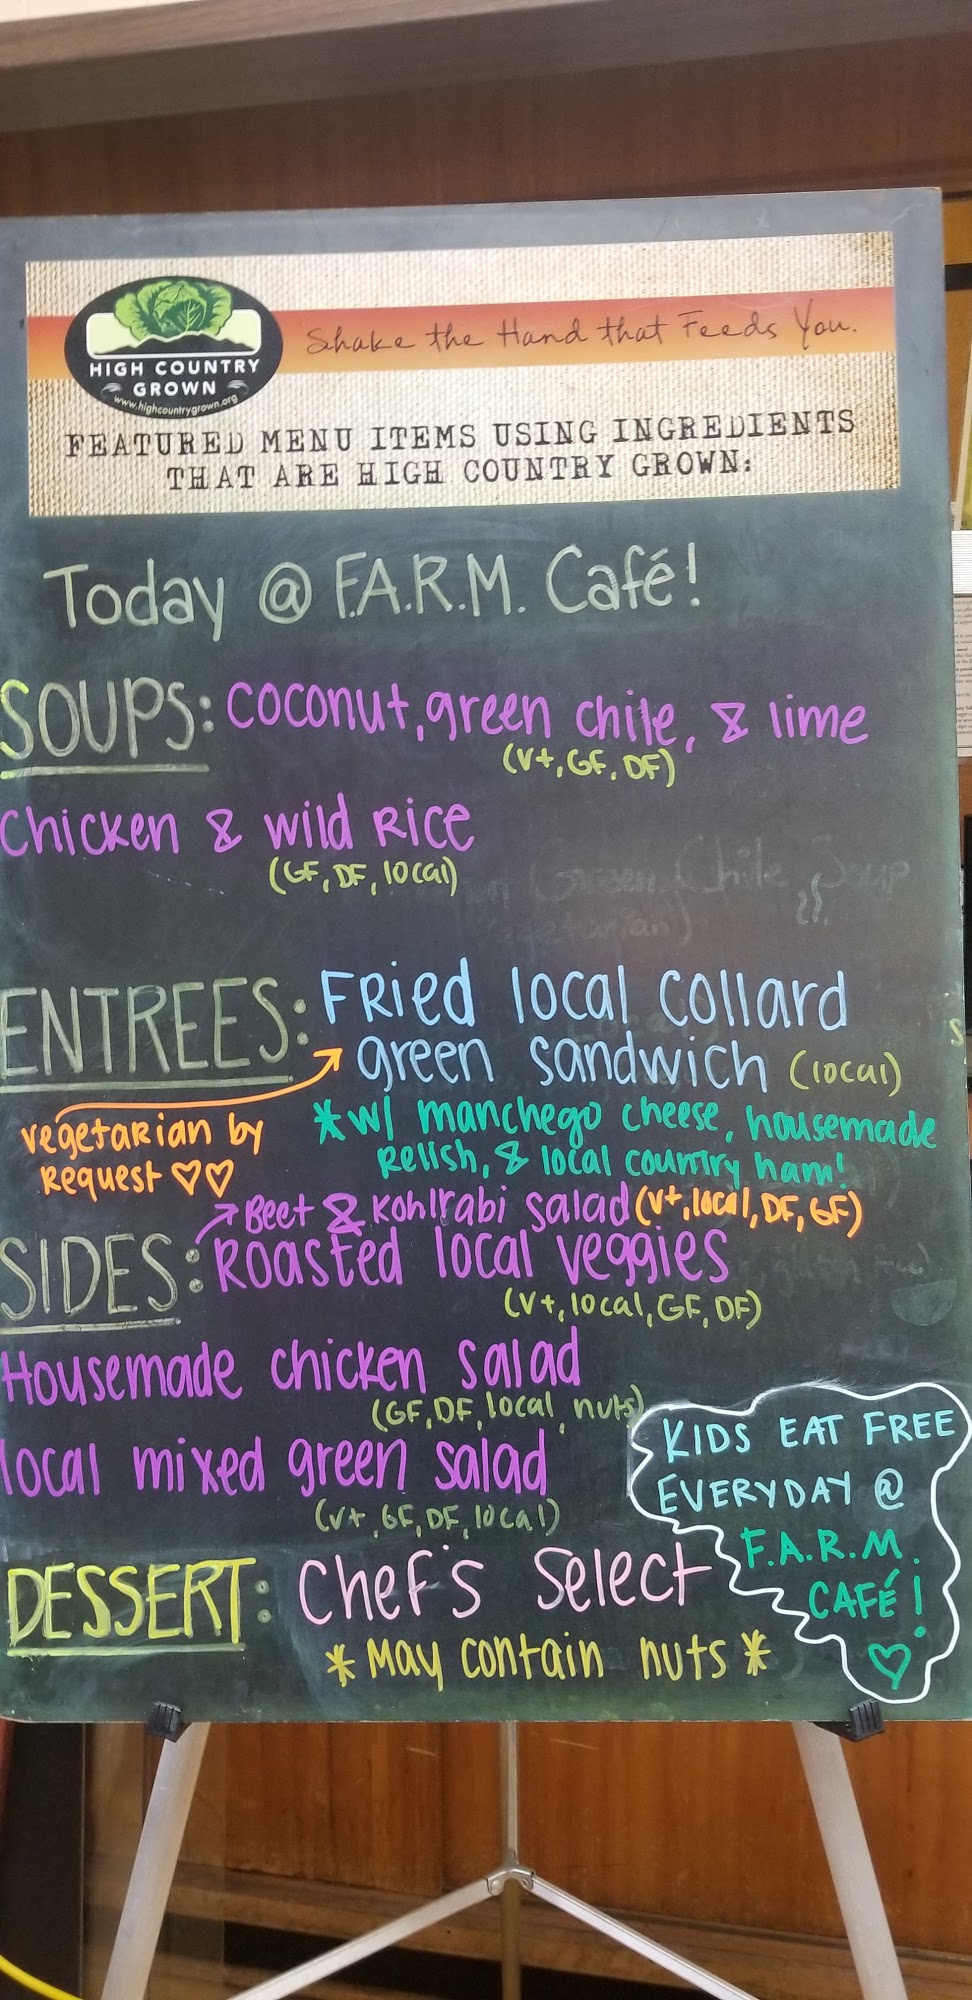 HIGH COUNTRY
GROWN
www.highcountrygrown.org
Shake the Hand that Feeds You.
FEATURED MENU ITEMS USING INGREDIENTS
THAT ARE HIGH COUNTRY GROWN:
Today @ F.A.R.M. Café!
SOUPS: coconut, green chile, & lime
(V+, GF, DF)
Chicken & wild Rice
(GF, DF, local)
ENTREES: FRied local collard
green sandwich (local)
vegetaRian by
Request ♡♡
*w/ manchego cheese, housemade
Relish, & local country ham!
Beet & Kohlrabi salad (V+, local, DF, GF)
SIDES: Roasted local veggies
(V+, local, GF, DF)
Housemade chicken salad
(GF, DF, local, nuts)
local mixed green salad
(V+, GF, DF, local)
KIDS EAT FREE
EVERYDAY @
F.A.R.M.
CAFÉ!
♡
DESSERT: Chef's Select
*May contain nuts*